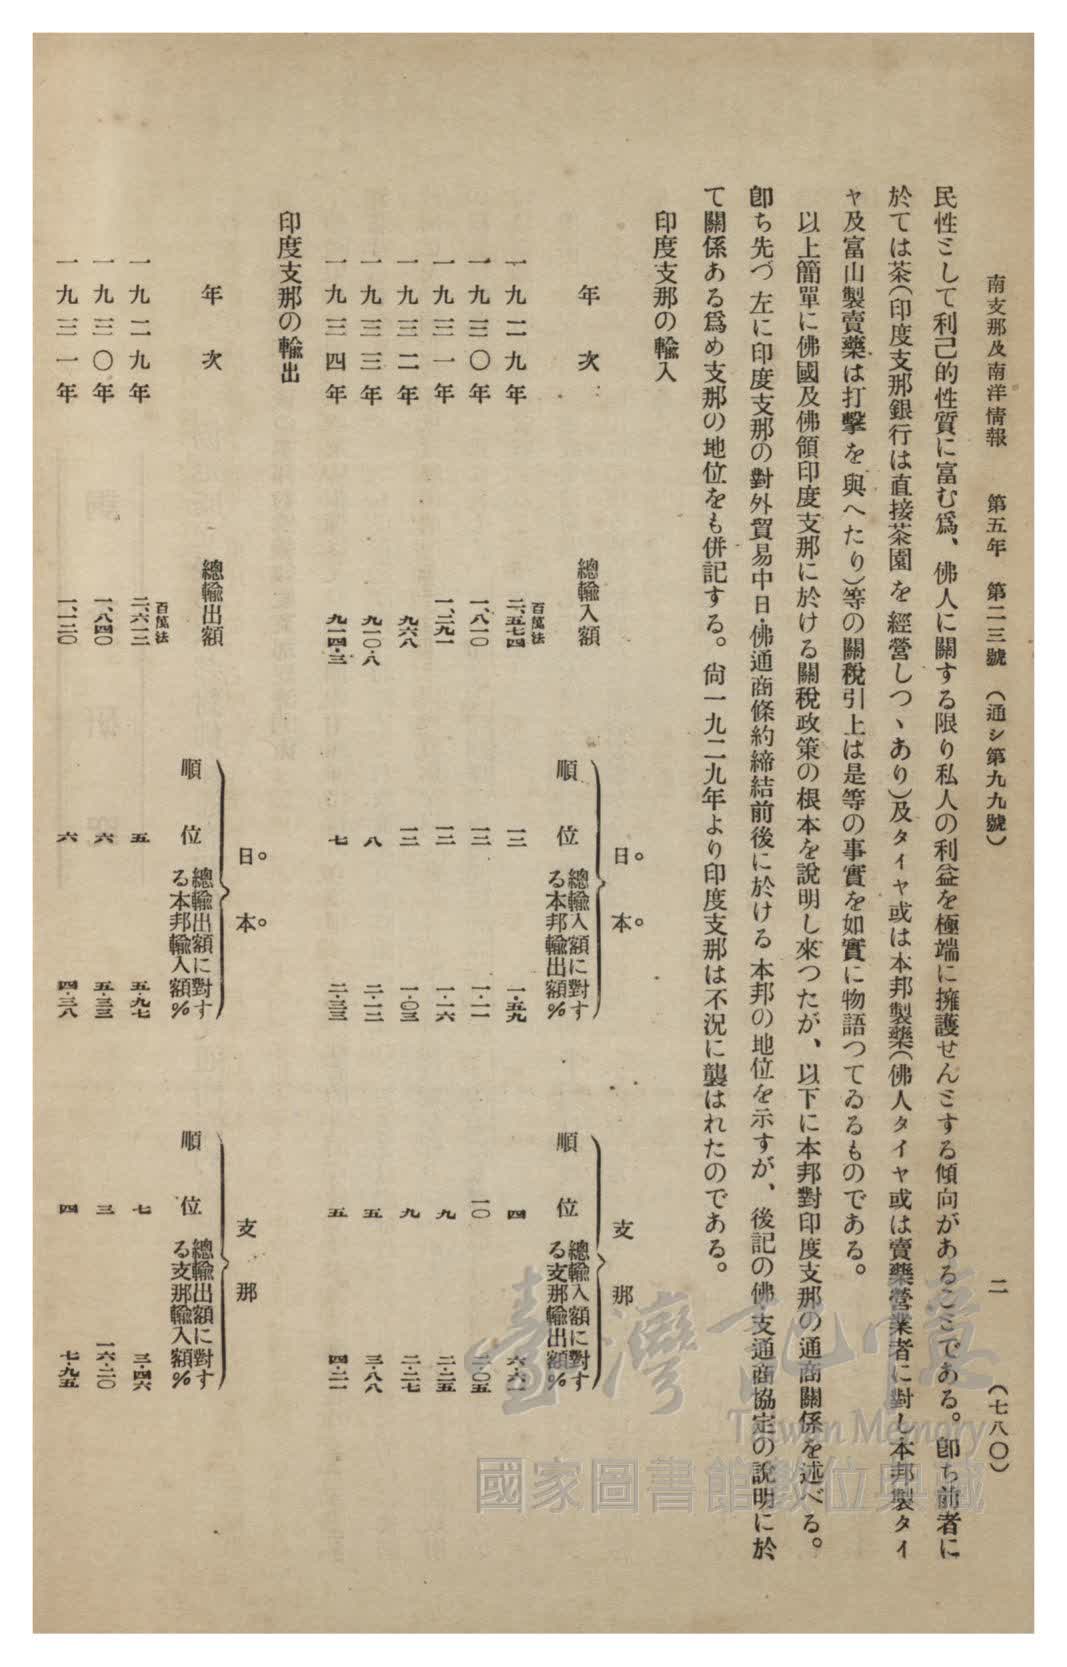 南支那及南洋情報　第五年　第二三號　（通シ第九九號）　二　（七八〇）
民性ミして利己的性質に富む爲、佛人に關する限り私人の利益を極端に擁護せんミする傾向があるこミである。卽ち前者に
於ては茶（印度支那銀行は直接茶園を經營しつゝあり）及タイヤ或は本邦製藥（佛人タイヤ或は賣藥營業者に對し本邦製タイ
ヤ及富山製賣藥は打擊を與へたり）等の關稅引上は是等の事實を如實に物語つてゐるものである。
以上簡單に佛國及佛領印度支那に於ける關稅政策の根本を說明し來つたが、以下に本邦對印度支那の通商關係を述べる。
卽ち先づ左に印度支那の對外貿易中日・佛通商條約締結前後に於ける本邦の地位を示すが、後記の佛・支通商協定の說明に於
て關係ある爲め支那の地位をも併記する。尙一九二九年より印度支那は不況に襲はれたのである。
印度支那の輸入
日。本。　支那
年次　總輸入額　順位　總輸入額に對する本邦輸出額％　順位　總輸入額に對する支那輸出額％
百萬法
一九二九年　二、五七四　一三　一・五九　四　六・六一
一九三〇年　一、八一〇　一三　一・一一　一〇　二・〇五
一九三一年　一、二九一　一三　一・一六　九　二・二五
一九三二年　九六八　一三　一・〇三　九　二・二七
一九三三年　九一〇・八　八　二・一二　五　三・八八
一九三四年　九一四・三　七　二・三三　五　四・二一
印度支那の輸出
日。本。　支那
年次　總輸出額　順位　總輸出額に對する本邦輸入額％　順位　總輸出額に對する支那輸入額％
百萬法
一九二九年　二、六一二　五　五・九七　七　三・四六
一九三〇年　一、八四〇　六　五・三三　三　一六・二〇
一九三一年　一、一二〇　六　四・三八　四　七・九五
臺灣記憶
Taiwan Memory
國家圖書館數位典藏